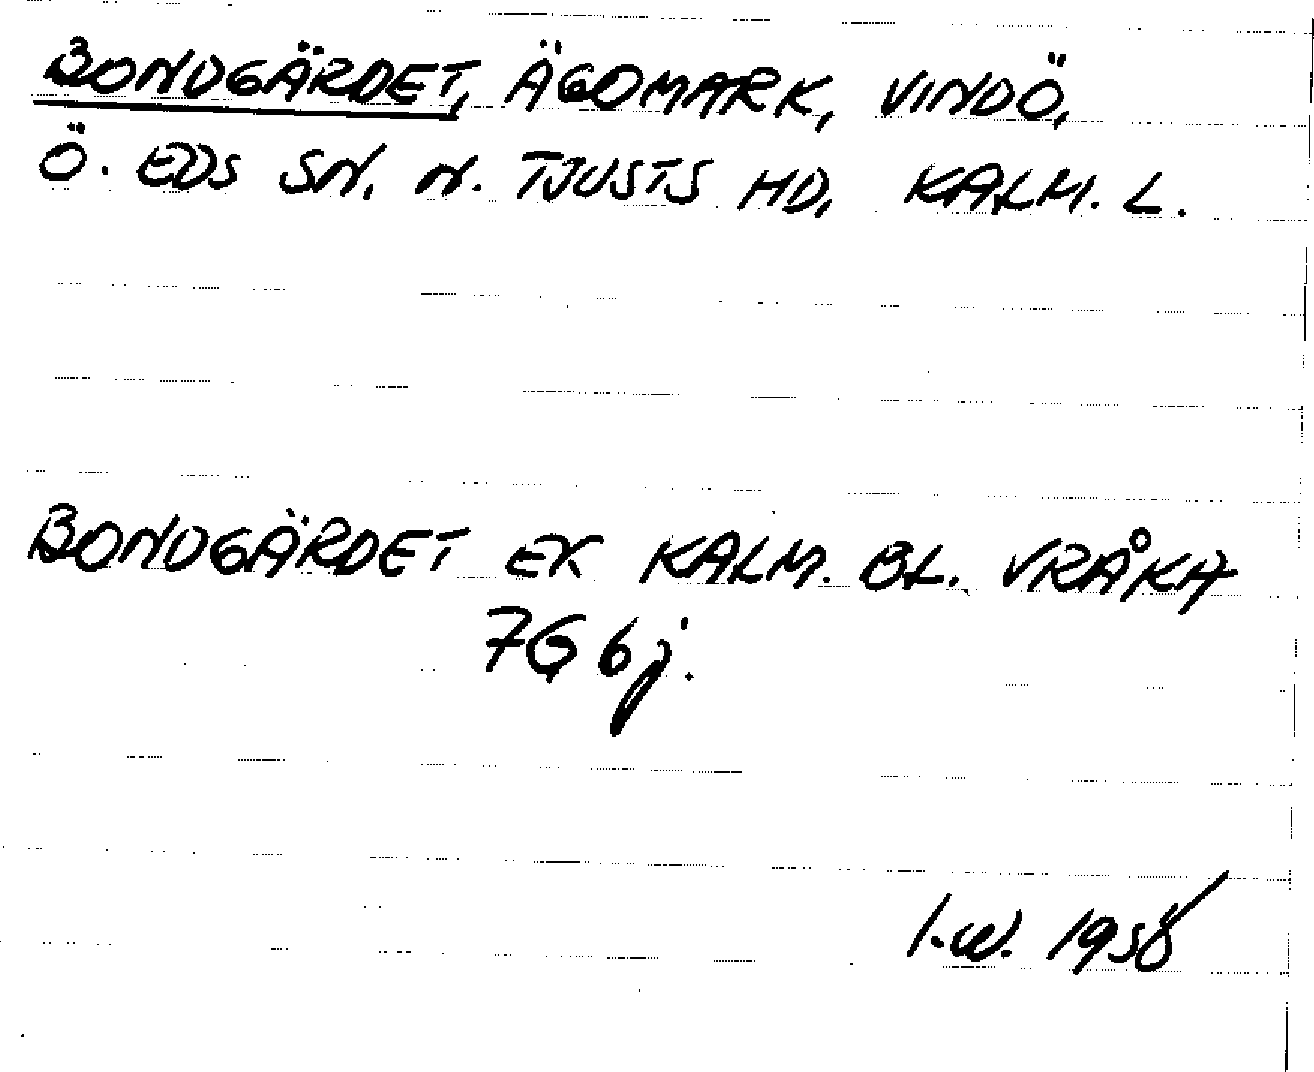 BONDGÄRDET, ÄGOMARK, VINDÖ,
Ö. EDS SN. N. TJUSTS HD, KALM. L.
BONDGÄRDET EK KALM. BL. VRÅKA
7G 6j.
I.W. 1958